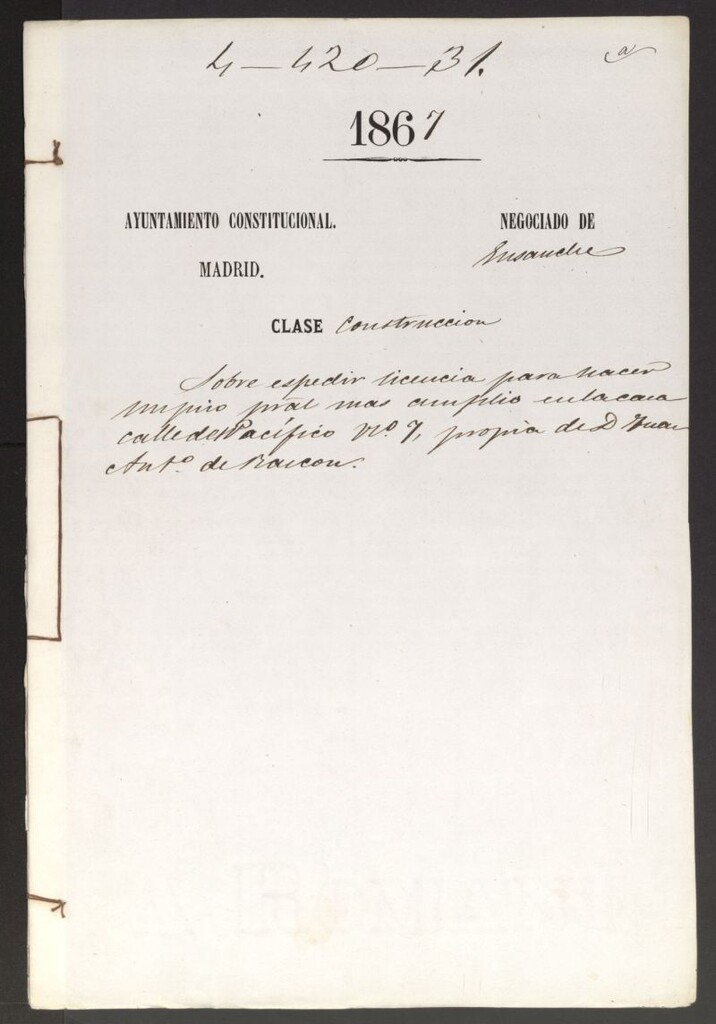 4-420-31.
a
1867
AYUNTAMIENTO CONSTITUCIONAL.
MADRID.
NEGOCIADO DE
Ensanche
CLASE Construccion
Sobre espedir licencia para hacer
un piso pral mas amplio en la casa
calle del Pacífico Nº 7, propia de D Juan
Antº de Rascon.